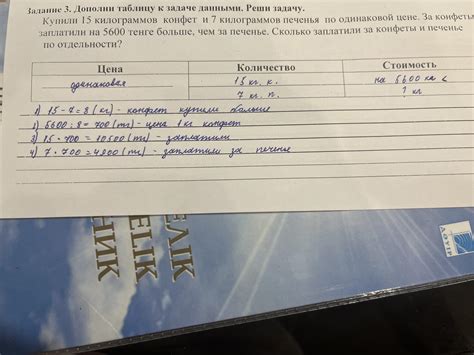 Задание 3. Дополни таблицу к задаче данными. Реши задачу.
Купили 15 килограммов конфет и 7 килограммов печенья по одинаковой цене. За конфеты
заплатили на 5600 тенге больше, чем за печенье. Сколько заплатили за конфеты и печенье
по отдельности?
Цена Количество Стоимость
одинаковая 15 кг. к. на 5600
7 кг. п.
1) 15 - 7 = 8 (кг) - конфет купили больше
5600 : 8 = 700 (тг) - цена 1 кг конфет
3) 15 · 700 = 10500 (тг) - заплатили
4) 7 · 700 = 4900 (тг) - заплатили за печенье